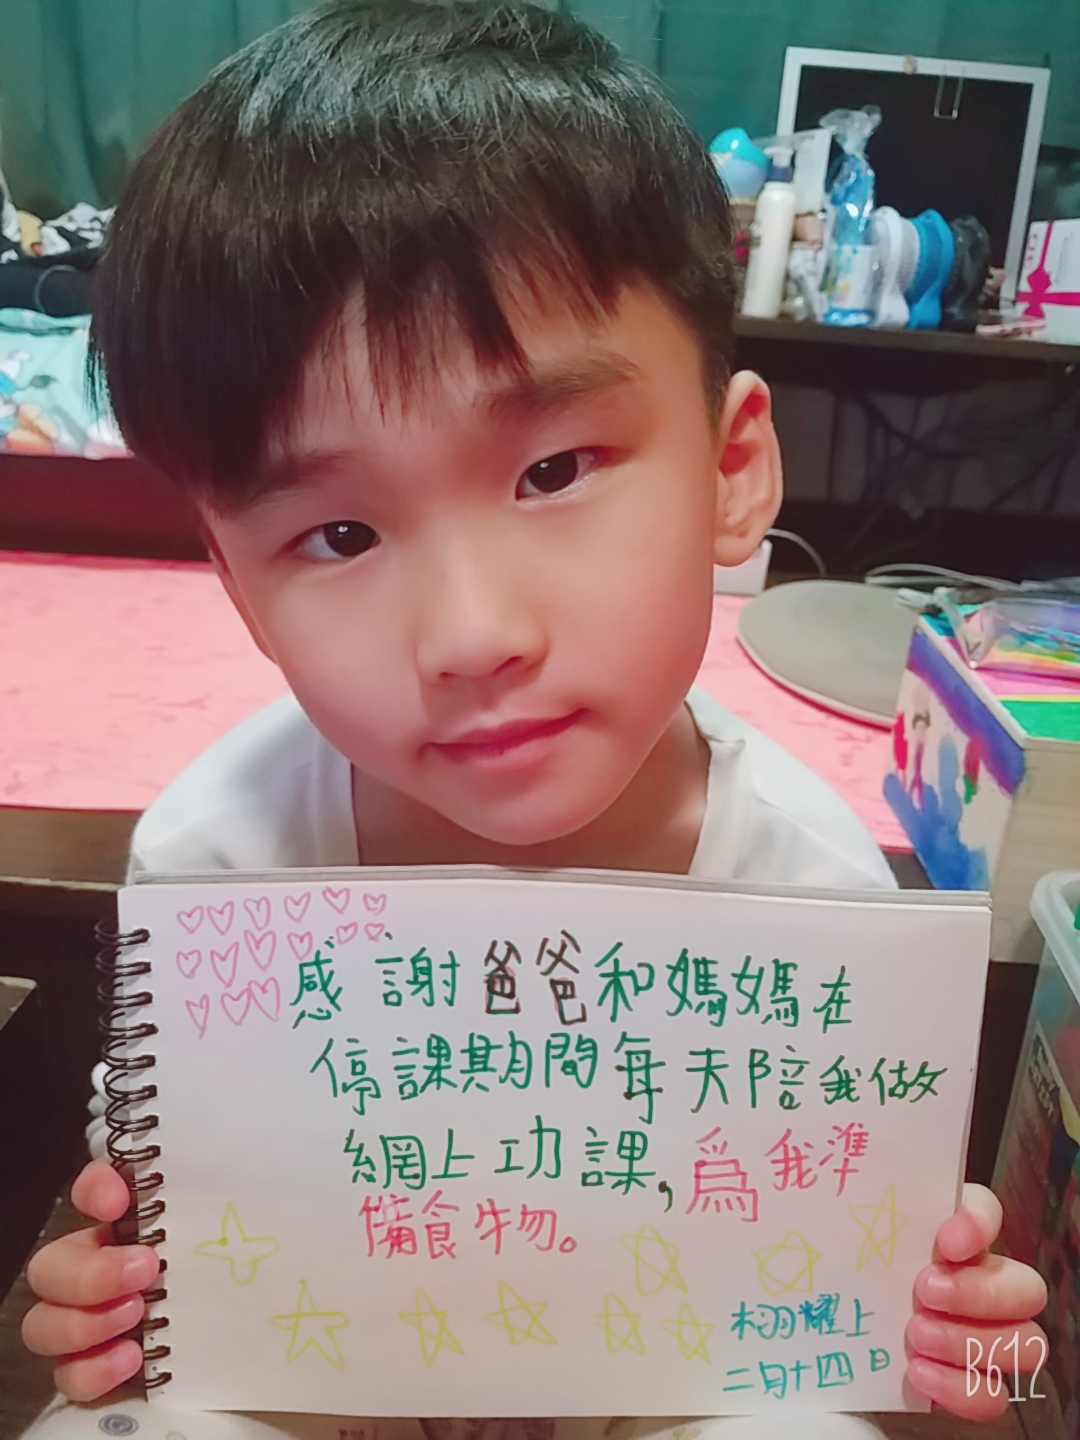 感謝爸爸和媽媽在
停課期間每天陪我做
網上功課,為我準
備食物。
栩耀上
二月十四日
B612